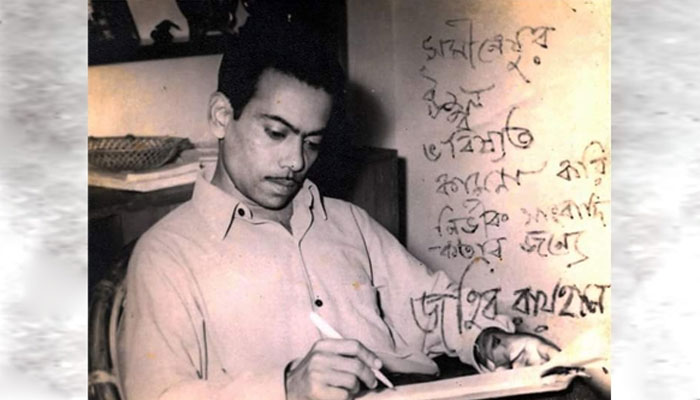 উজ্জ্বল
ভবিষ্যত
কামনা করি
নির্ভীক সাংবাদি
কতার জন্যে
জহির রায়হান